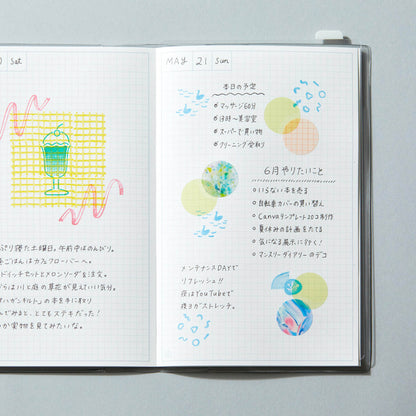 Sat
っぷり寝た土曜日。午前中はのんびり。
ごはんはカフェフローバーへ。
ドイッチセットとメロンソーダを注文。
らは川と庭の草花が見えていい気分。
の本を手に取り
んでみると、とてもステキだった！
か実物を見てみたいな。
MAY 21 Sun
本日の予定
マッサージ60分
13時〜美容室
スーパーで買い物
クリーニング受取り
6月やりたいこと
いらない本を売る
自転車カバーの買い替え
Canvaテンプレート20コ制作
夏休みの計画をたてる
気になる展示に行く！
マンスリーダイアリーのデコ
メンテナンスDAYで
リフレッシュ!!
夜はYouTubeで
夜ヨガストレッチ。